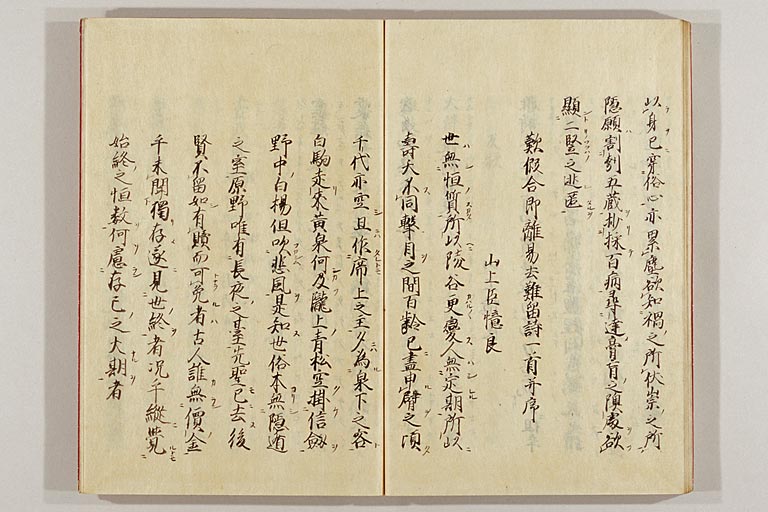 以身已穿俗心亦累塵欲知禍之所伏祟之所
隠願割刳五蔵抄採百病尋達膏肓之隩處欲
顯二竪之逃匿
歎假合即離易去難留詩一首并序
山上臣憶良
世無恒質所以陵谷更變人無定期所以
壽夭不同撃目之間百齡已盡申臂之頃
千代亦空旦作席上之主夕為泉下之客
白馬走来黄泉何及隴上青松空掛信劔
野中白楊但吹悲風是知世俗本無隠遁
之室原野唯有長夜之臺先聖已去後
賢不留如有贖而可免者古人誰無價金
乎未聞獨存遂見世終者況乎縱覺
始終之恒數何慮存亡之大期者